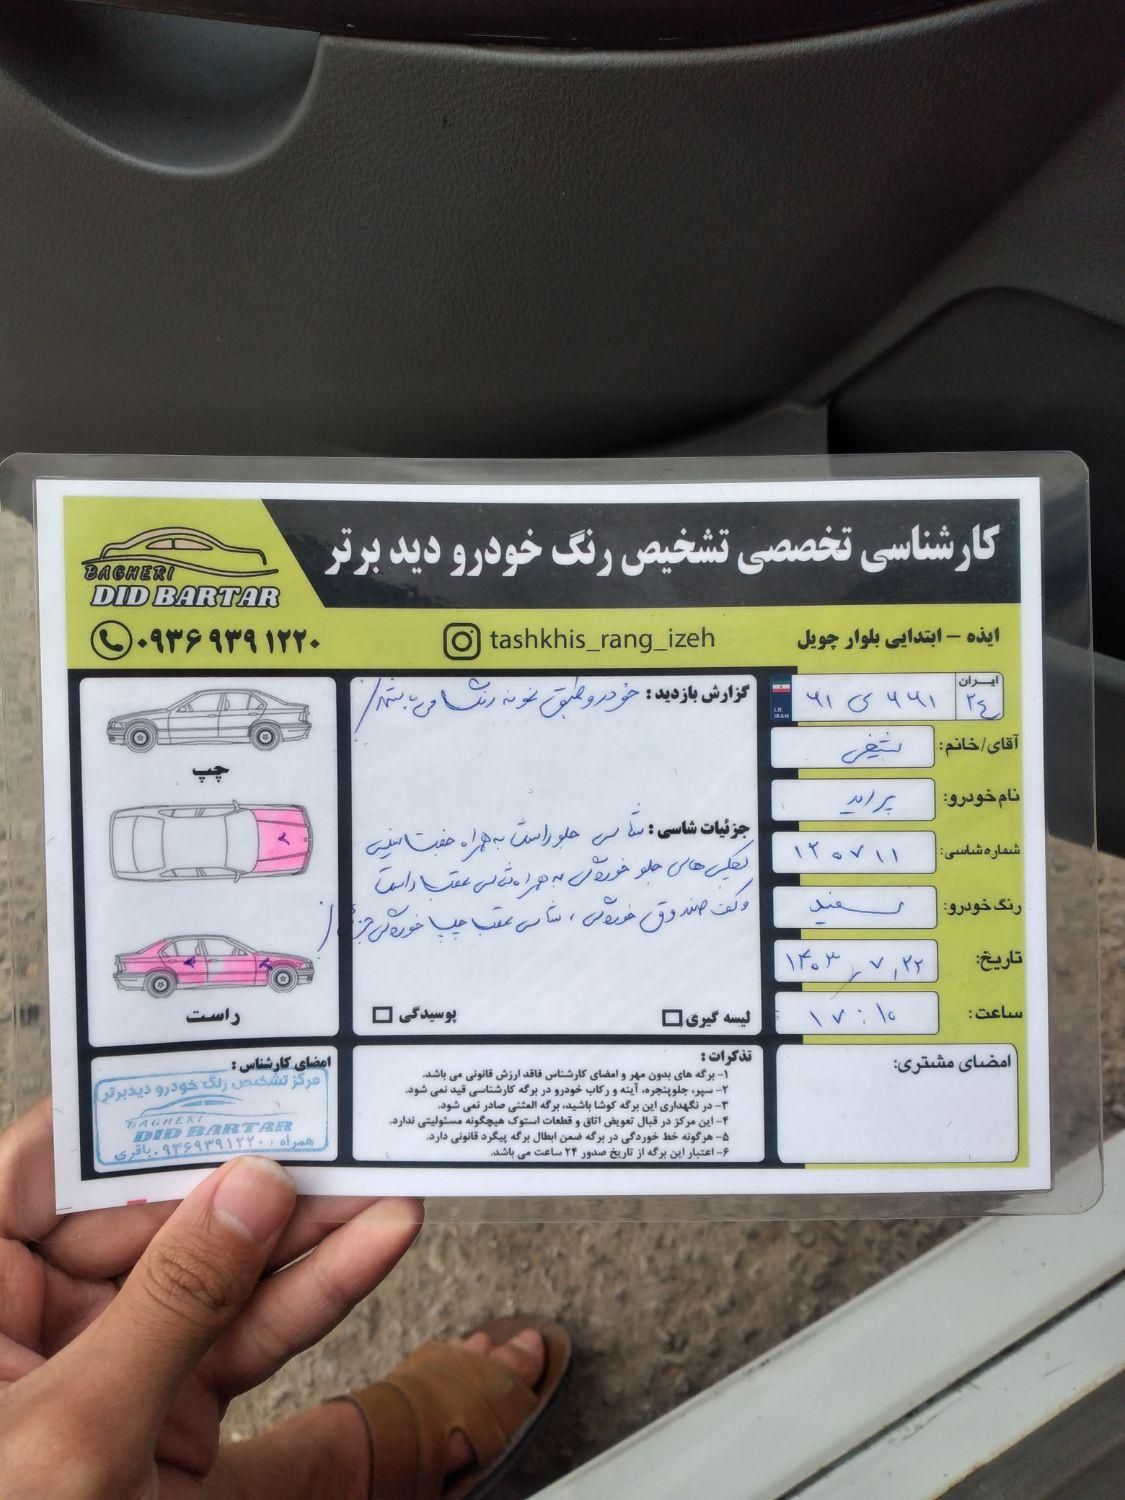 کارشناسی تخصصی تشخیص رنگ خودرو دید برتر
BAGHERI
DID BARTAR
ایذه - ابتدایی بلوار چویل
tashkhis_rang_izeh
۰۹۳۶ ۹۳۹ ۱۲۲۰
ایران
۲۴
۶۶۱ ی ۶۱
I.R.
IRAN
آقای/خانم: شیخی
نام خودرو: پراید
شماره شاسی: ۱۲۰۷۱۱
رنگ خودرو: سفید
تاریخ: ۱۴۰۳/۷/۲۲
ساعت: ۱۷:۱۰
امضای مشتری:
گزارش بازدید: خودرو طبق نمونه رنگ می باشد/
جزئیات شاسی: شاسی جلو راست به همراه هفت
های جلو خوردگی به همراه شاسی عقب راست
و کف صندوق خوردگی، شاسی عقب چپ خوردگی جزئی/
لیسه گیری
پوسیدگی
چپ
۲
راست
۲
۲
تذکرات:
۱- برگه های بدون مهر و امضای کارشناس فاقد ارزش قانونی می باشد.
۲- سپر، جلوپنجره، آینه و رکاب خودرو در برگه کارشناسی قید نمی شود.
۳- در نگهداری این برگه کوشا باشید، برگه المثنی صادر نمی شود.
۴- این مرکز در قبال تعویض اتاق و قطعات استوک هیچگونه مسئولیتی ندارد.
۵- هرگونه خط خوردگی در برگه ضمن ابطال برگه پیگرد قانونی دارد.
۶- اعتبار این برگه از تاریخ صدور ۲۴ ساعت می باشد.
امضای کارشناس:
مرکز تشخیص رنگ خودرو دیدبرتر
BAGHERI
DID BARTAR
همراه: ۰۹۳۶۹۳۹۱۲۲۰ باقری